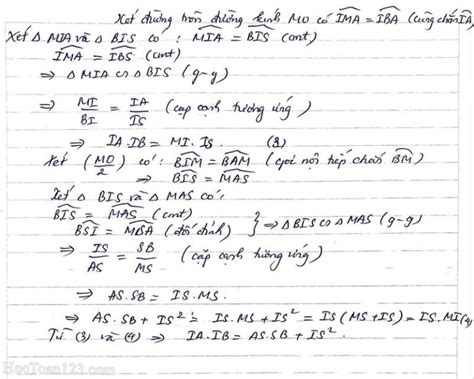 Xét đường tròn đường kính MO có IMA = IBA (cùng chắn IA)
Xét Δ MIA và Δ BIS có: MIA = BIS (cmt)
IMA = IBS (cmt)
⇒ Δ MIA ∽ Δ BIS (g-g)
⇒ MI/BI = IA/IS (cặp cạnh tương ứng)
⇒ IA.IB = MI.IS (3)
Xét (MO/2) có: BIM = BAM (góc nội tiếp chắn BM)
⇒ BIS = MAS
Xét Δ BIS và Δ MAS có:
BIS = MAS (cmt)
BSI = MBA (đối đỉnh) } ⇒ Δ BIS ∽ Δ MAS (g-g)
⇒ IS/AS = SB/MS (cặp cạnh tương ứng)
⇒ AS.SB = IS.MS.
⇒ AS.SB + IS² = IS.MS + IS² = IS(MS+IS) = IS.MI(4)
Từ (3) và (4) ⇒ IA.IB = AS.SB + IS².
HocToan123.com